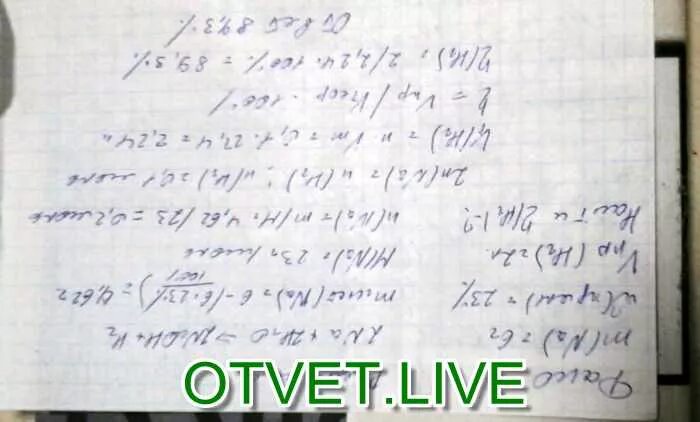 Дано
m(Na) = 6г
ω(прим) = 23%
Vпр(H₂) = 2л
Найти η(H₂)-?
2Na + 2H₂O → 2NaOH + H₂
m чист(Na) = 6 - (6·23%/100%) = 4,62г
M(Na) = 23г/моль
n(Na) = m/M = 4,62/23 = 0,2 моль
2n(Na) = n(H₂); n(H₂) = 0,1 моль
V(H₂) = n·Vm = 0,1·22,4 = 2,24л
η = Vпр/Vтеор · 100%
η(H₂) = 2/2,24·100% = 89,3%
Ответ 89,3%
OTVET.LIVE